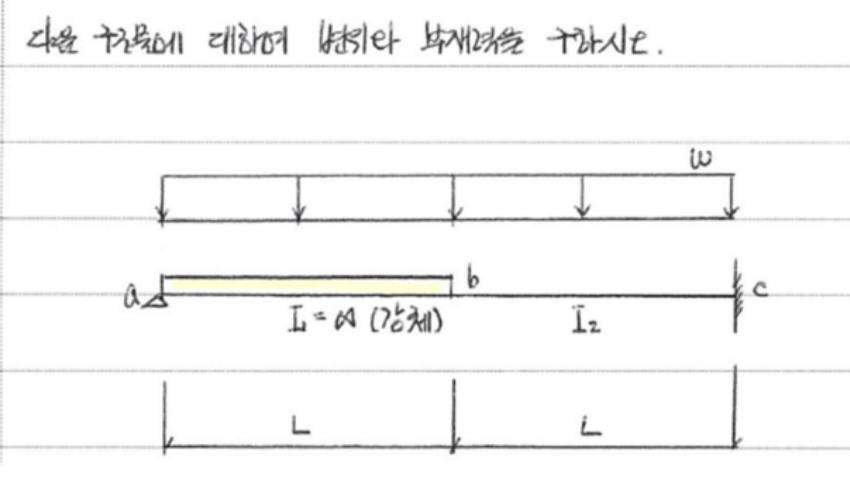 다음 구조물에 대하여 변위와 부재력을 구하시오.
w
a
b
c
I₁ = ∞ (강체)
I₂
L
L